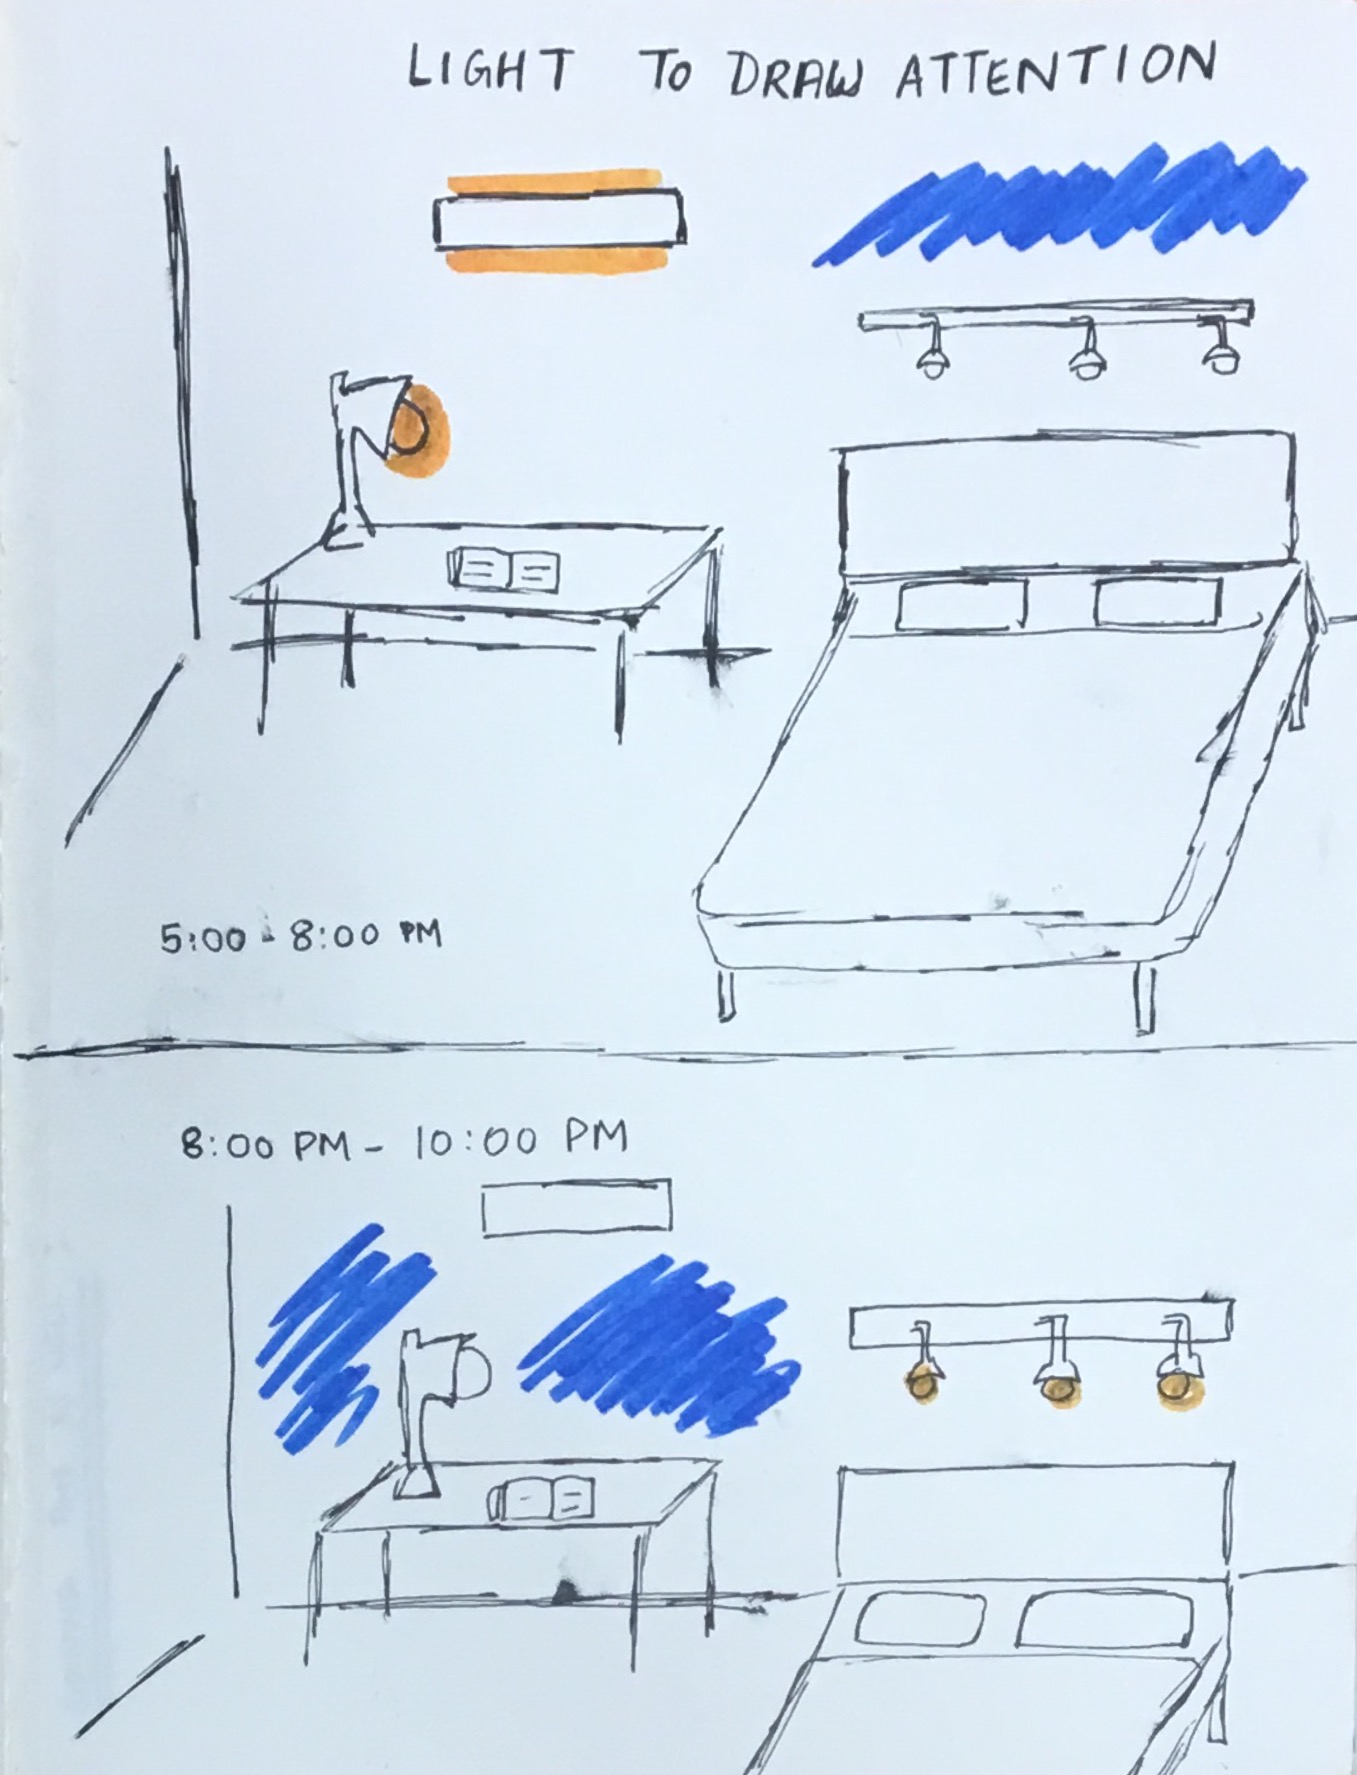 LIGHT TO DRAW ATTENTION
5:00 - 8:00 PM
8:00 PM - 10:00 PM